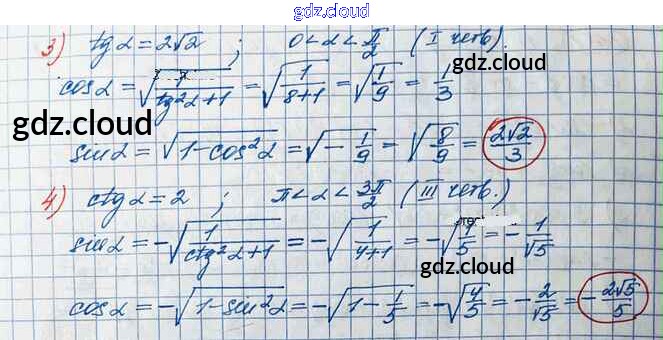 gdz.cloud
3) tg α = 2√2 ; 0 < α < π/2 (I четв).
gdz.cloud
cos α = √(1/(tg²α+1)) = √(1/(8+1)) = √(1/9) = 1/3
gdz.cloud
sin α = √(1−cos²α) = √(−1/9) = √(8/9) = 2√2/3
4) ctg α = 2 ; π < α < 3π/2 (III четв.)
sin α = −√(1/(ctg²α+1)) = −√(1/(4+1)) = −√(1/5) = −1/√5
gdz.cloud
cos α = −√(1−sin²α) = −√(1−1/5) = −√(4/5) = −2/√5 = −2√5/5